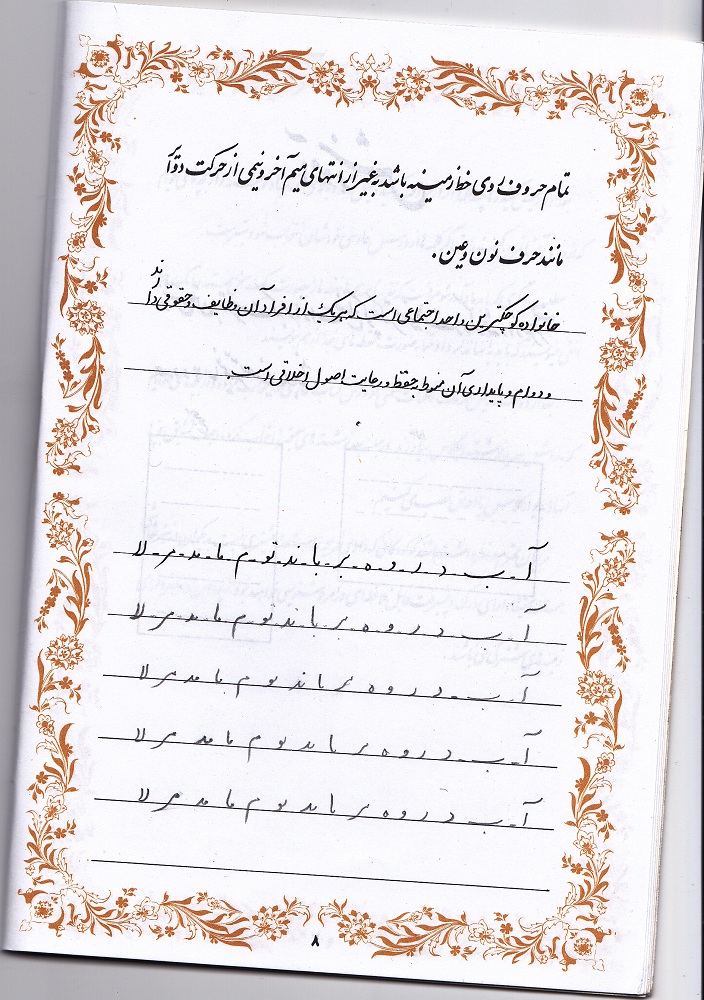 تمام حروف روی خط زمینه باشد به غیر از انتهای میم آخر و نیمی از حرکت دوائر
مانند حرف نون و عین .
خانواده کوچکترین واحد اجتماعی است که هر یک از افراد آن وظایف و حقوقی دارند
و دوام و پایداری آن منوط به حفظ و رعایت اصول اخلاقی است .
آ ب د ر و ه بر با ند تو م ما مد مر لا
آ ب د ر و ه بر با ند تو م ما مد مر لا
آ ب د ر و ه بر با ند تو م ما مد مر لا
آ ب د ر و ه بر با ند تو م ما مد مر لا
آ ب د ر و ه بر با ند تو م ما مد مر لا
۸